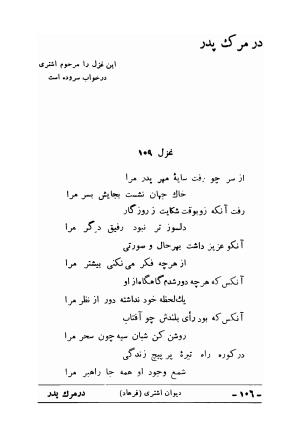 در مرگ پدر
این غزل را مرحوم اشتری
درخواب سروده است
غزل ۱۰۹
از سر چو رفت سایهٔ مهر پدر مرا
خاك جهان نشست بجایش بسر مرا
رفت آنکه زوبوقت شکایت ز روزگار
دلسوز تر نبود رفیق دگر مرا
آنکو عزیز داشت بهرحال و صورتی
از هرچه فکر می نکنی بیشتر مرا
آنکس که هرچه دورشدم گاهگاه از او
یك لحظه خود نداشته دور از نظر مرا
آنکس که بود رأی بلندش چو آفتاب
روشن کن شبان سیه چون سحر مرا
در کوره راه تیرهٔ پر پیچ زندگی
شمع وجود او همه جا راهبر مرا
-۱۰۶- دیوان اشتری (فرهاد) در مرگ پدر